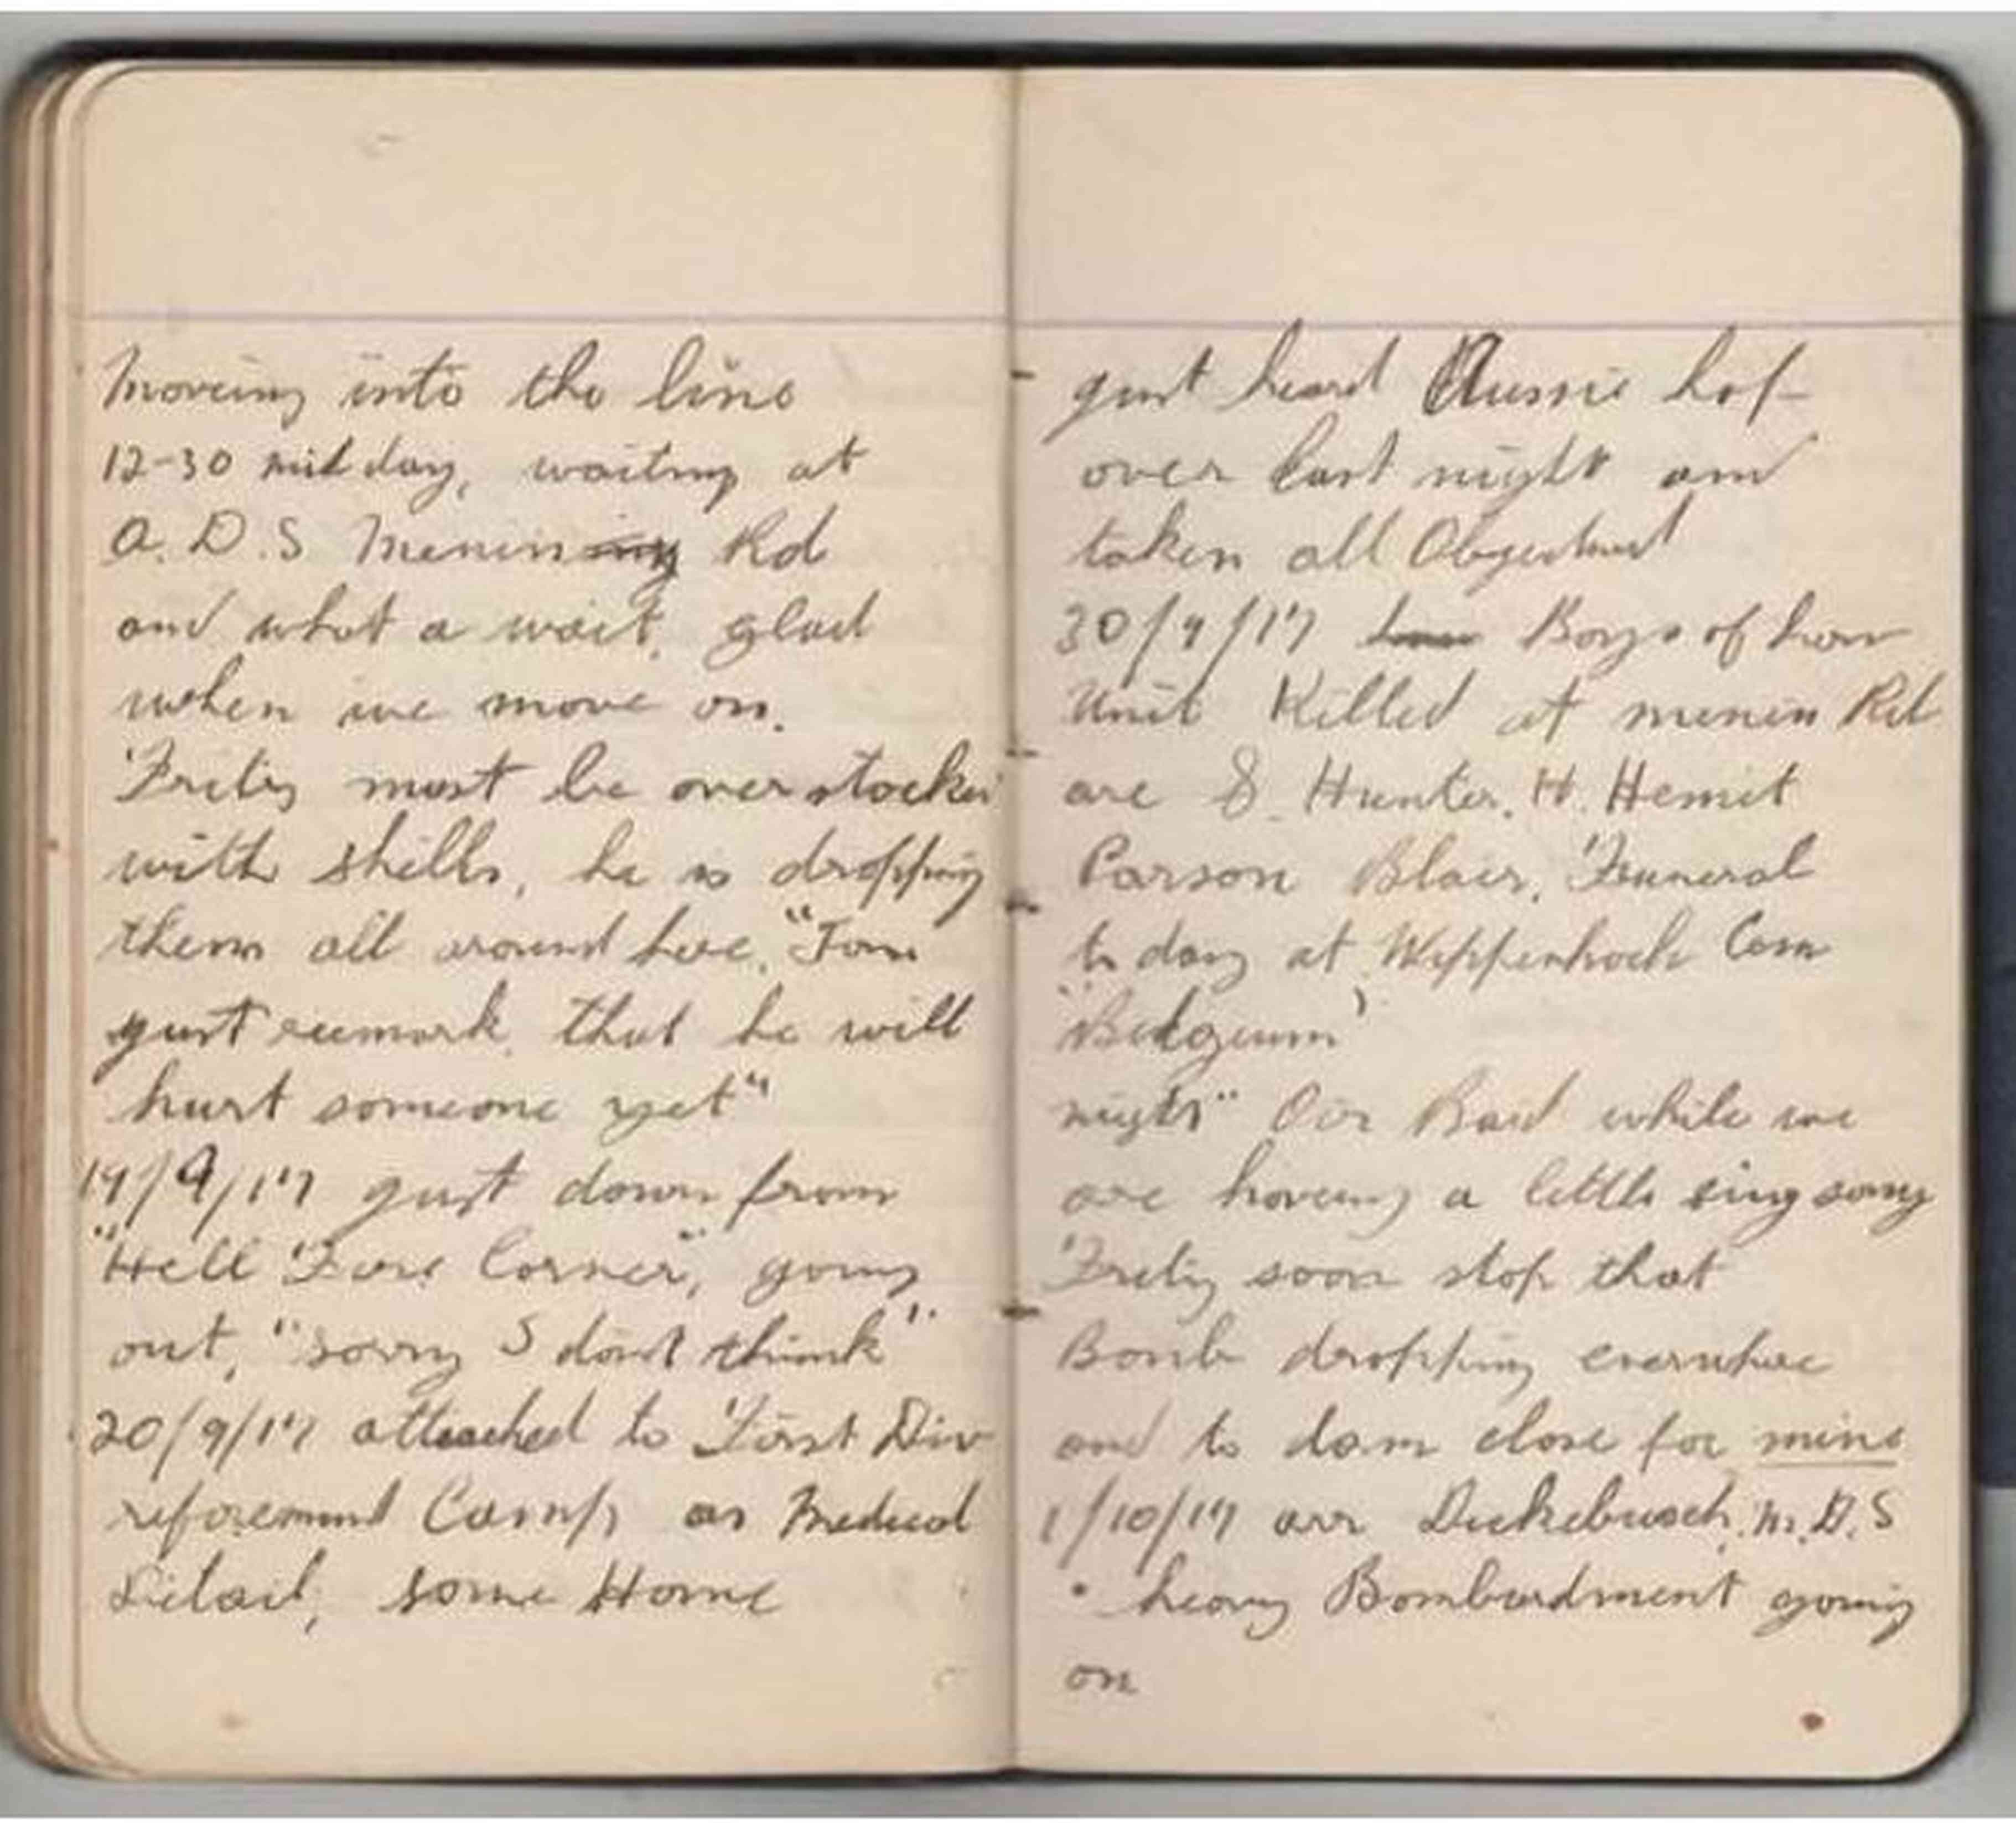 Moveing into the line
12-30 mid day, waiting at
A.D.S Menin Rd
and what a wait, glad
when we move on.
Fritz must be overstocked
with shells, he is dropping
them all around here, "Tom
just remark that he will
hurt someone yet"
19/9/17 just down from
"Hell Fire Corner", going
out, "sorry I don't think".
20/9/17 attached to First Div
reforcement Camp as Medical
Detail, some Home
just heard Aussie hop
over last night and
taken all
30/9/17 Boys of
Unit Killed at menin Rd
are S. Hunter, H.
Parson Blair, Funeral
to day at Wippenhoek Cem
"Belgium"
night" Air Raid while we
are haveing a little sing song
Fritz soon stop that
Bomb dropping everwhere
and to dam close for mine
1/10/17 arr Dickebusch, M.D.S
heavy Bombardment going
on